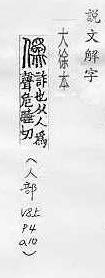 説文解字
大徐本
僞 詐也从人爲
聲危睡切
(人部
V8上
P4
a10)